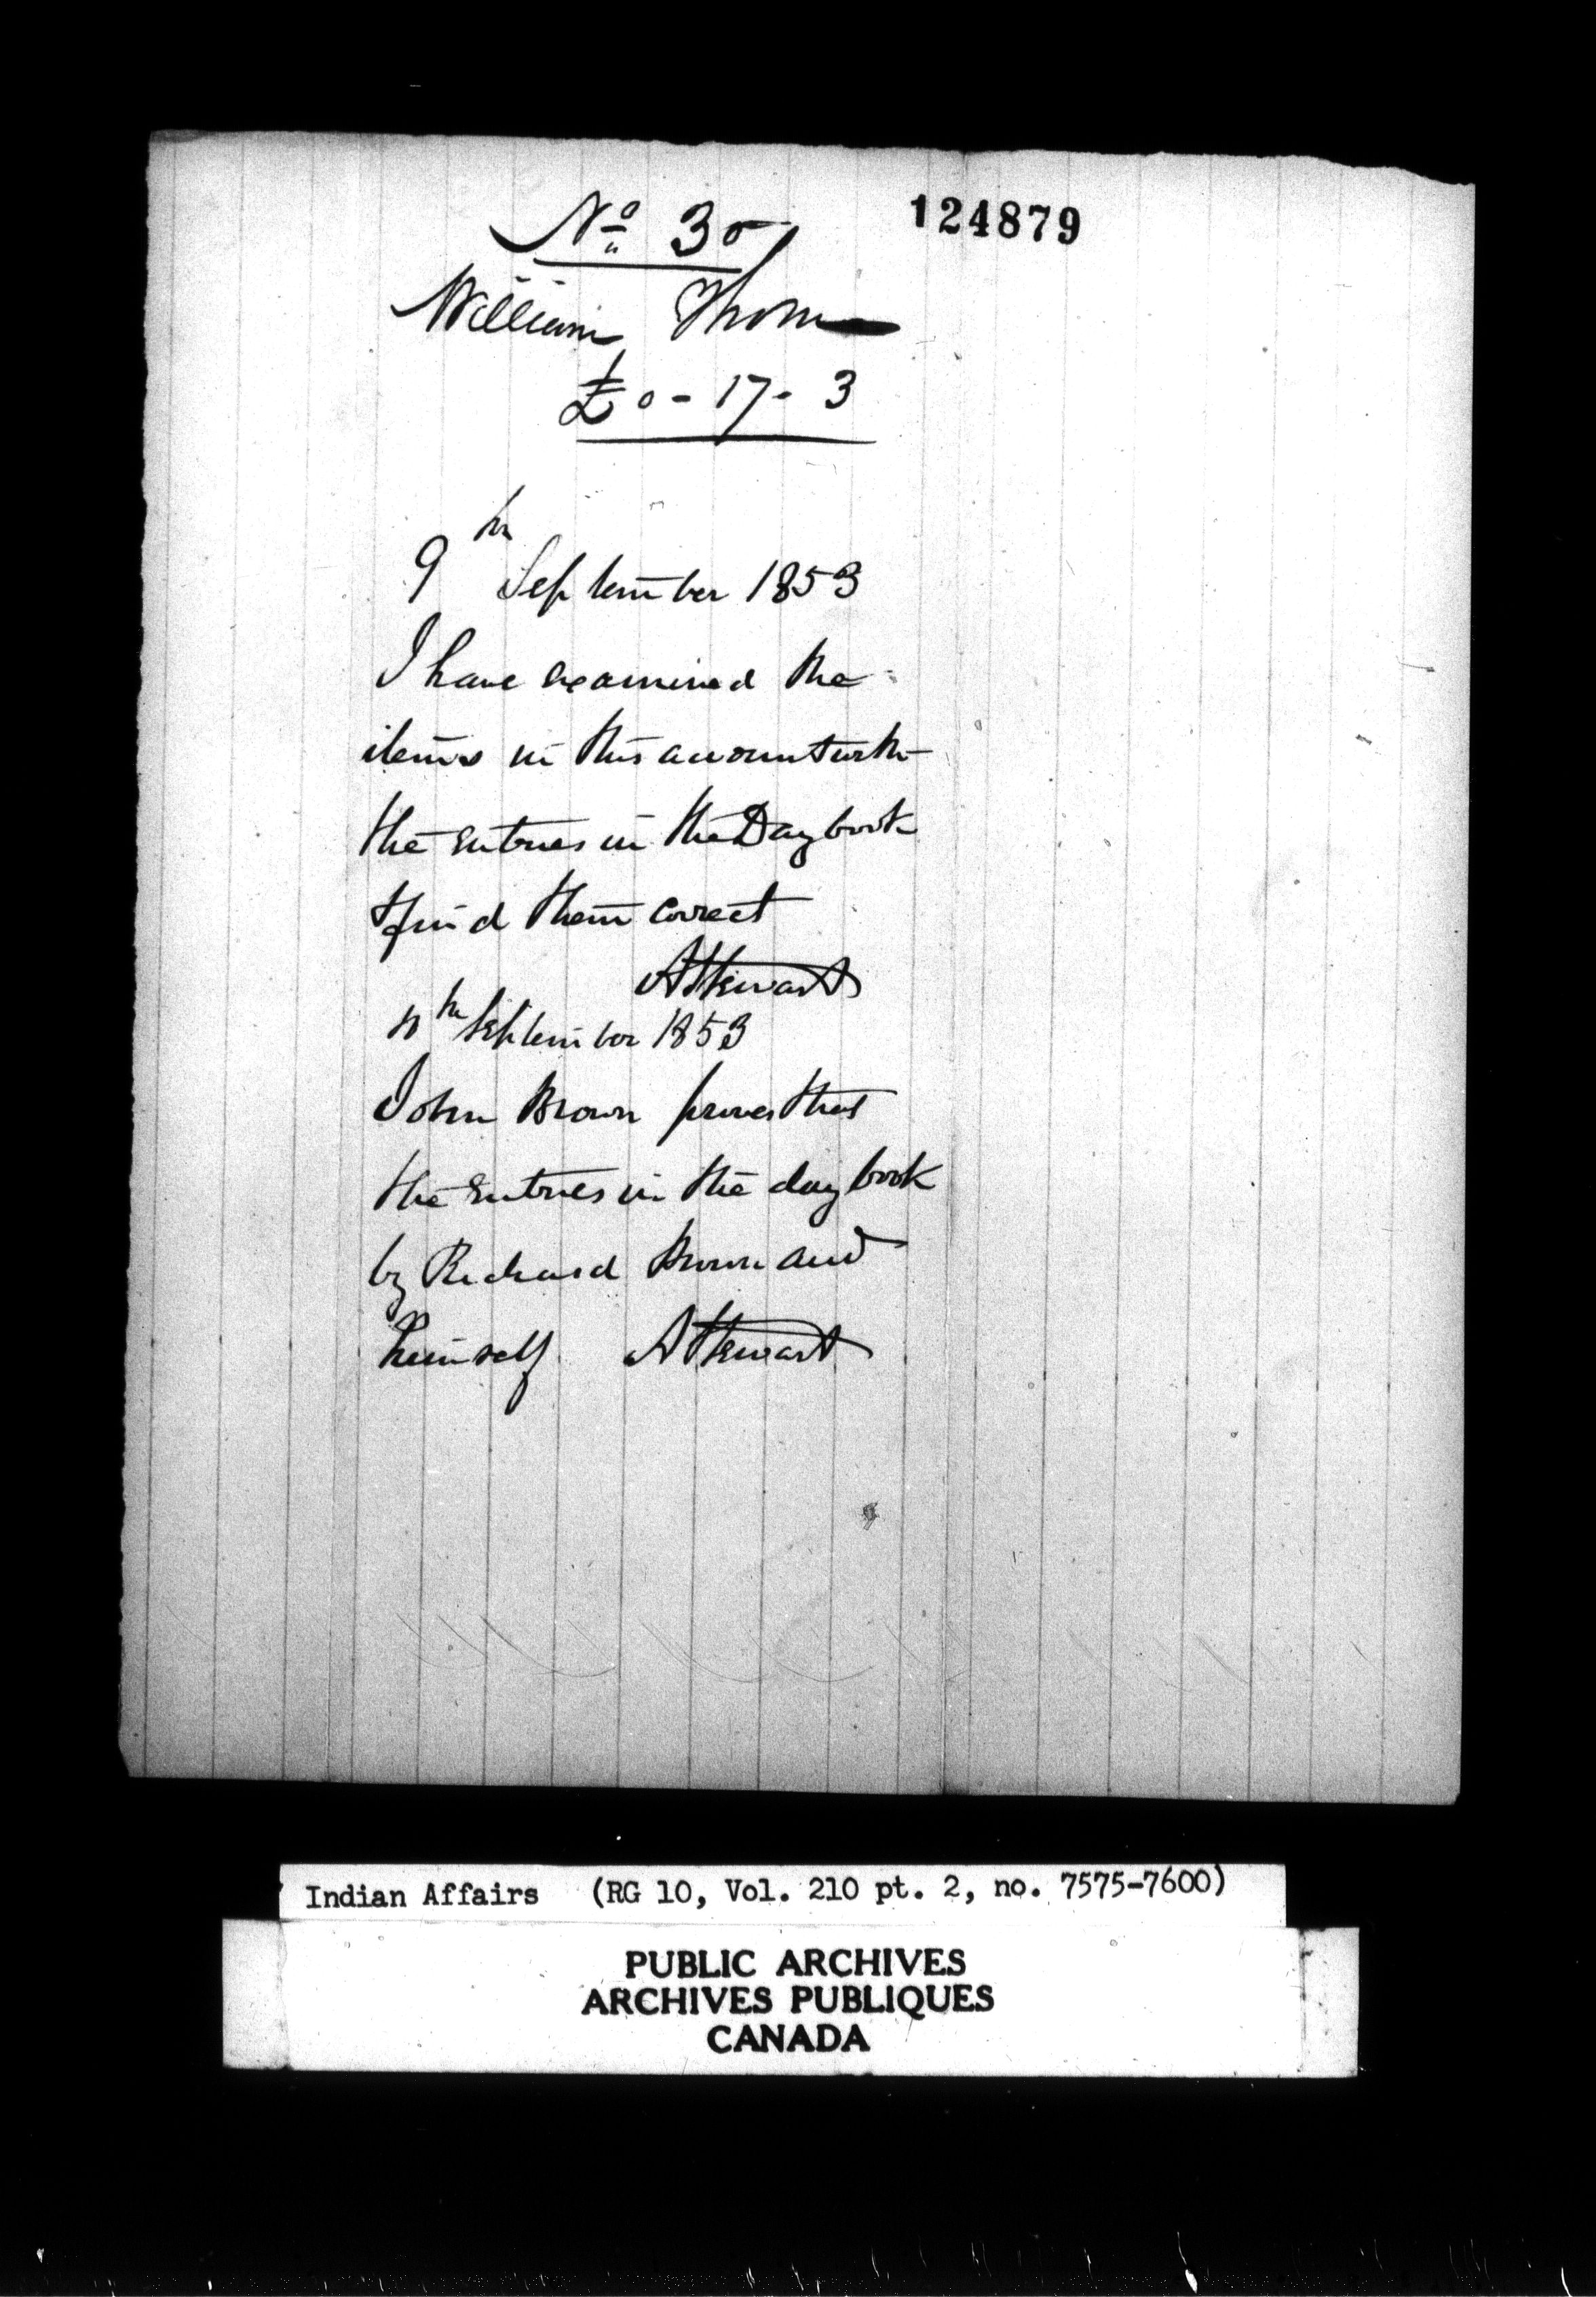 124879
No 30
William Thom
£0-17-3
9th September 1853
I have examined the
items in this account with
the entries in the Day book
& find them correct
A Stewart
September 1853
John Brown proves that
the entries in the day book
by Richard Brown and
himself A Stewart
Indian Affairs (RG 10, Vol. 210 pt. 2, no. 7575-7600)
PUBLIC ARCHIVES
ARCHIVES PUBLIQUES
CANADA